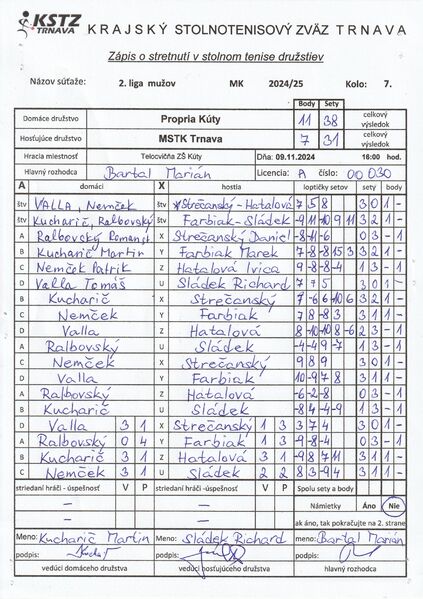 KSTZ TRNAVA KRAJSKÝ STOLNOTENISOVÝ ZVÄZ TRNAVA
Zápis o stretnutí v stolnom tenise družstiev
Názov súťaže: 2. liga mužov MK 2024/25 Kolo: 7.
Body Sety
Domáce družstvo Propria Kúty 11 38 celkový výsledok
Hosťujúce družstvo MSTK Trnava 7 31 celkový výsledok
Hracia miestnosť Telocvičňa ZŠ Kúty Dňa: 09.11.2024 16:00 hod.
Hlavný rozhodca Bartal Marián Licencia: A číslo: 00 030
A domáci X hostia loptičky setov sety body
štv VALLA, Nemček štv Strečanský-Hatalová 7 5 8 3 0 1 -
štv Kucharič, Ralbovský štv Farbiak-Sládek -9 11 -10 9 11 3 2 1 -
A Ralbovský X Strečanský Daniel -8 -11 -6 0 3 - 1
B Kucharič Martin Y Farbiak Marek 7 -8 -8 15 3 3 2 1 -
C Nemček Patrik Z Hatalová Ivica 9 -8 -8 -4 1 3 - 1
D Valla Tomáš U Sládek Richard 7 7 5 3 0 1 -
B Kucharič X Strečanský 7 -6 6 -10 6 3 2 1 -
C Nemček Y Farbiak 7 8 -8 3 3 1 1 -
D Valla Z Hatalová 8 -10 10 8 -6 2 3 - 1
A Ralbovský U Sládek -4 -4 9 -7 1 3 - 1
C Nemček X Strečanský 9 8 9 3 0 1 -
D Valla Y Farbiak 10 -9 7 8 3 1 1 -
A Ralbovský Z Hatalová -6 -2 -8 0 3 - 1
B Kucharič U Sládek -8 4 -4 -9 1 3 - 1
D Valla 3 1 X Strečanský 1 3 3 7 4 3 0 1 -
A Ralbovský 0 4 Y Farbiak 1 3 -9 8 -4 0 3 - 1
B Kucharič 3 1 Z Hatalová 3 1 -9 8 7 11 3 1 1 -
C Nemček 3 1 U Sládek 2 2 8 3 -9 4 3 1 1 -
striedaní hráči - úspešnosť V P striedaní hráči - úspešnosť V P Spolu sety a body
– – Námietky Áno Nie
– – ak áno, tak pokračujte na 2. strane
Meno: Kucharič Martin Meno: Sládek Richard meno: Bartal Marián
podpis: podpis: podpis:
vedúci domáceho družstva vedúci hosťujúceho družstva hlavný rozhodca